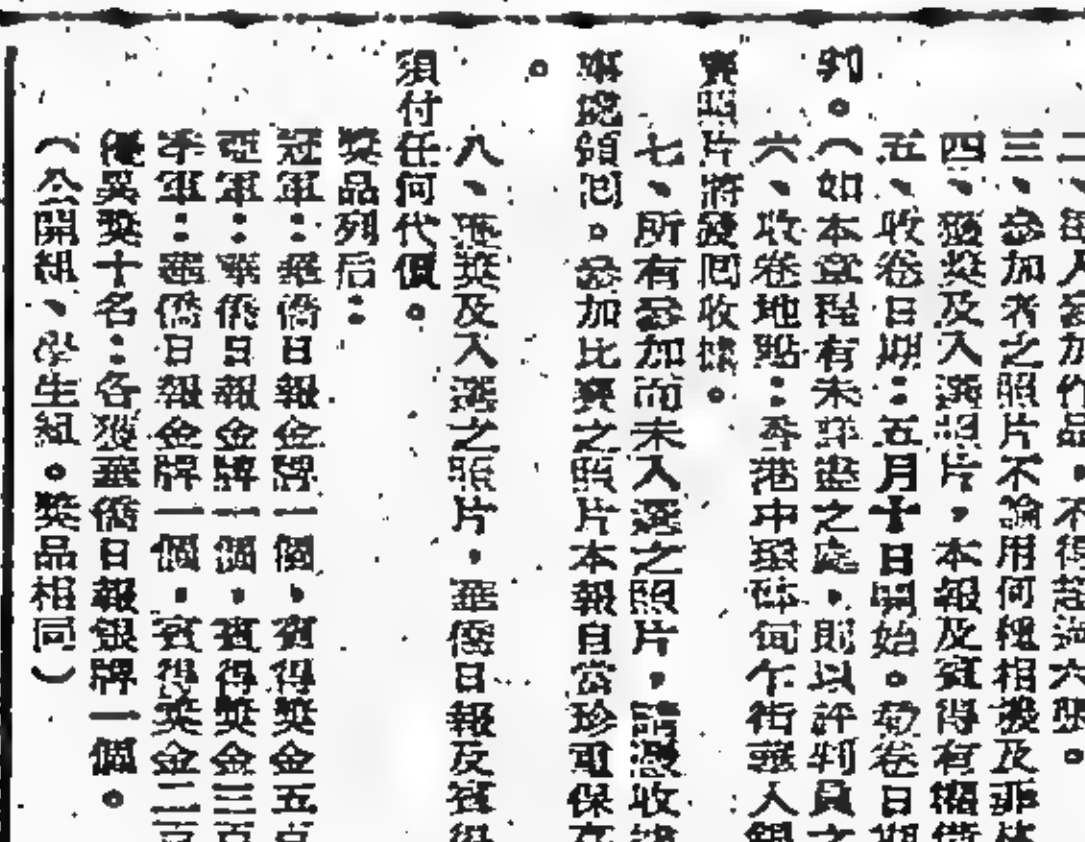 二、每人參加作品，不得超過六張。
三、參加者之照片不論用何種相機及菲林
四、獲獎及入選照片，本報及賓得有權
五、收卷日期：五月十日開始。截卷日期
六、收卷地點：香港中環砵甸乍街華人銀
判。（如本章程有未詳盡之處，則以評判員之
賽照片將發囘收據。
七、所有參加而未入選之照片，請憑收據
事處領囘。參加比賽之照片本報自當珍重保存
。
八、獲獎及入選之照片，華僑日報及賓得
須付任何代價。
獎品列后：
冠軍：華僑日報金牌一個、賓得獎金五百
亞軍：華僑日報金牌一個，賓得獎金三百
季軍：華僑日報金牌一個，賓得獎金二百
優異獎十名：各獲華僑日報銀牌一個。
（公開組、學生組。獎品相同）